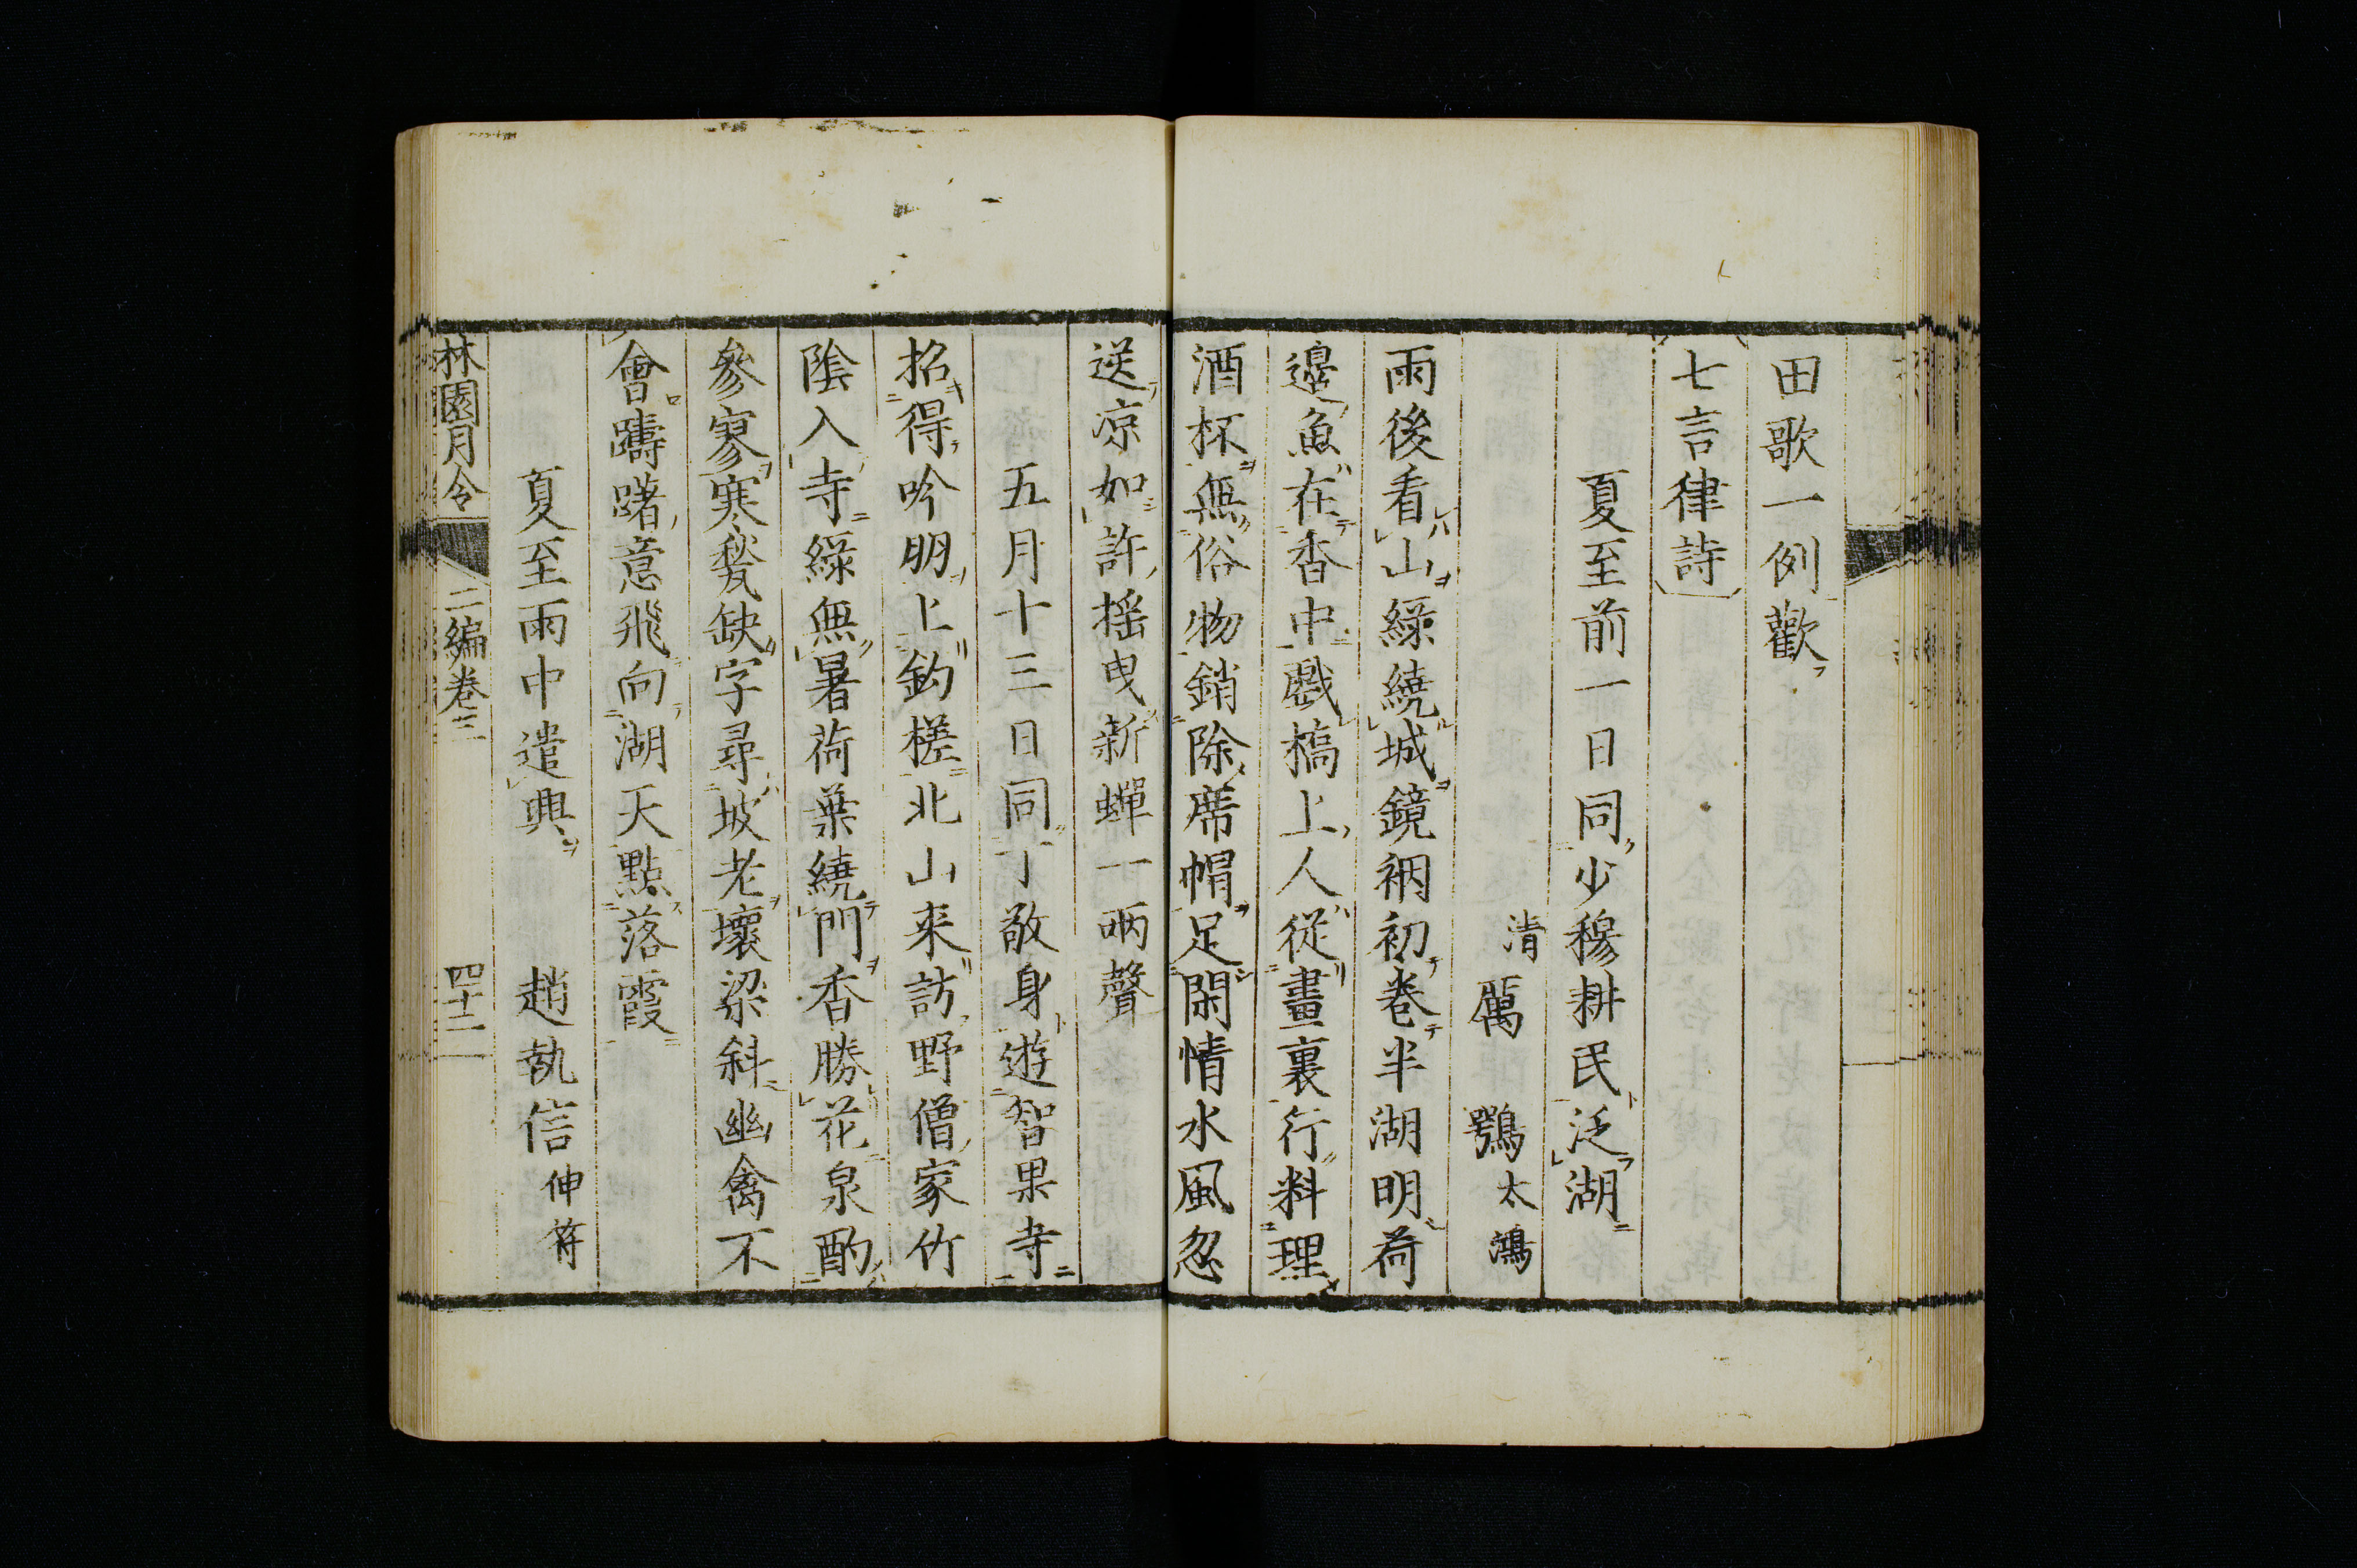 田歌一例歡
七言律詩
夏至前一日同少穆耕民泛湖
清厲鶚太鴻
雨後看山綠繞城鏡裀初卷半湖明荷
邊魚在香中戲橋上人從畫裏行料理
酒杯無俗物銷除席帽足閑情水風忽
送凉如許搖曳新蟬一兩聲
五月十三日同丁敬身遊智果寺
招得吟朋上釣槎北山来訪野僧家竹
陰入寺綠無暑荷葉繞門香勝花泉酌
參寥寒甃缺字尋坡老壞梁斜幽禽不
會躊躇意飛向湖天點落霞
夏至雨中遣興 趙執信伸符
林園月令 二編卷三 四十二